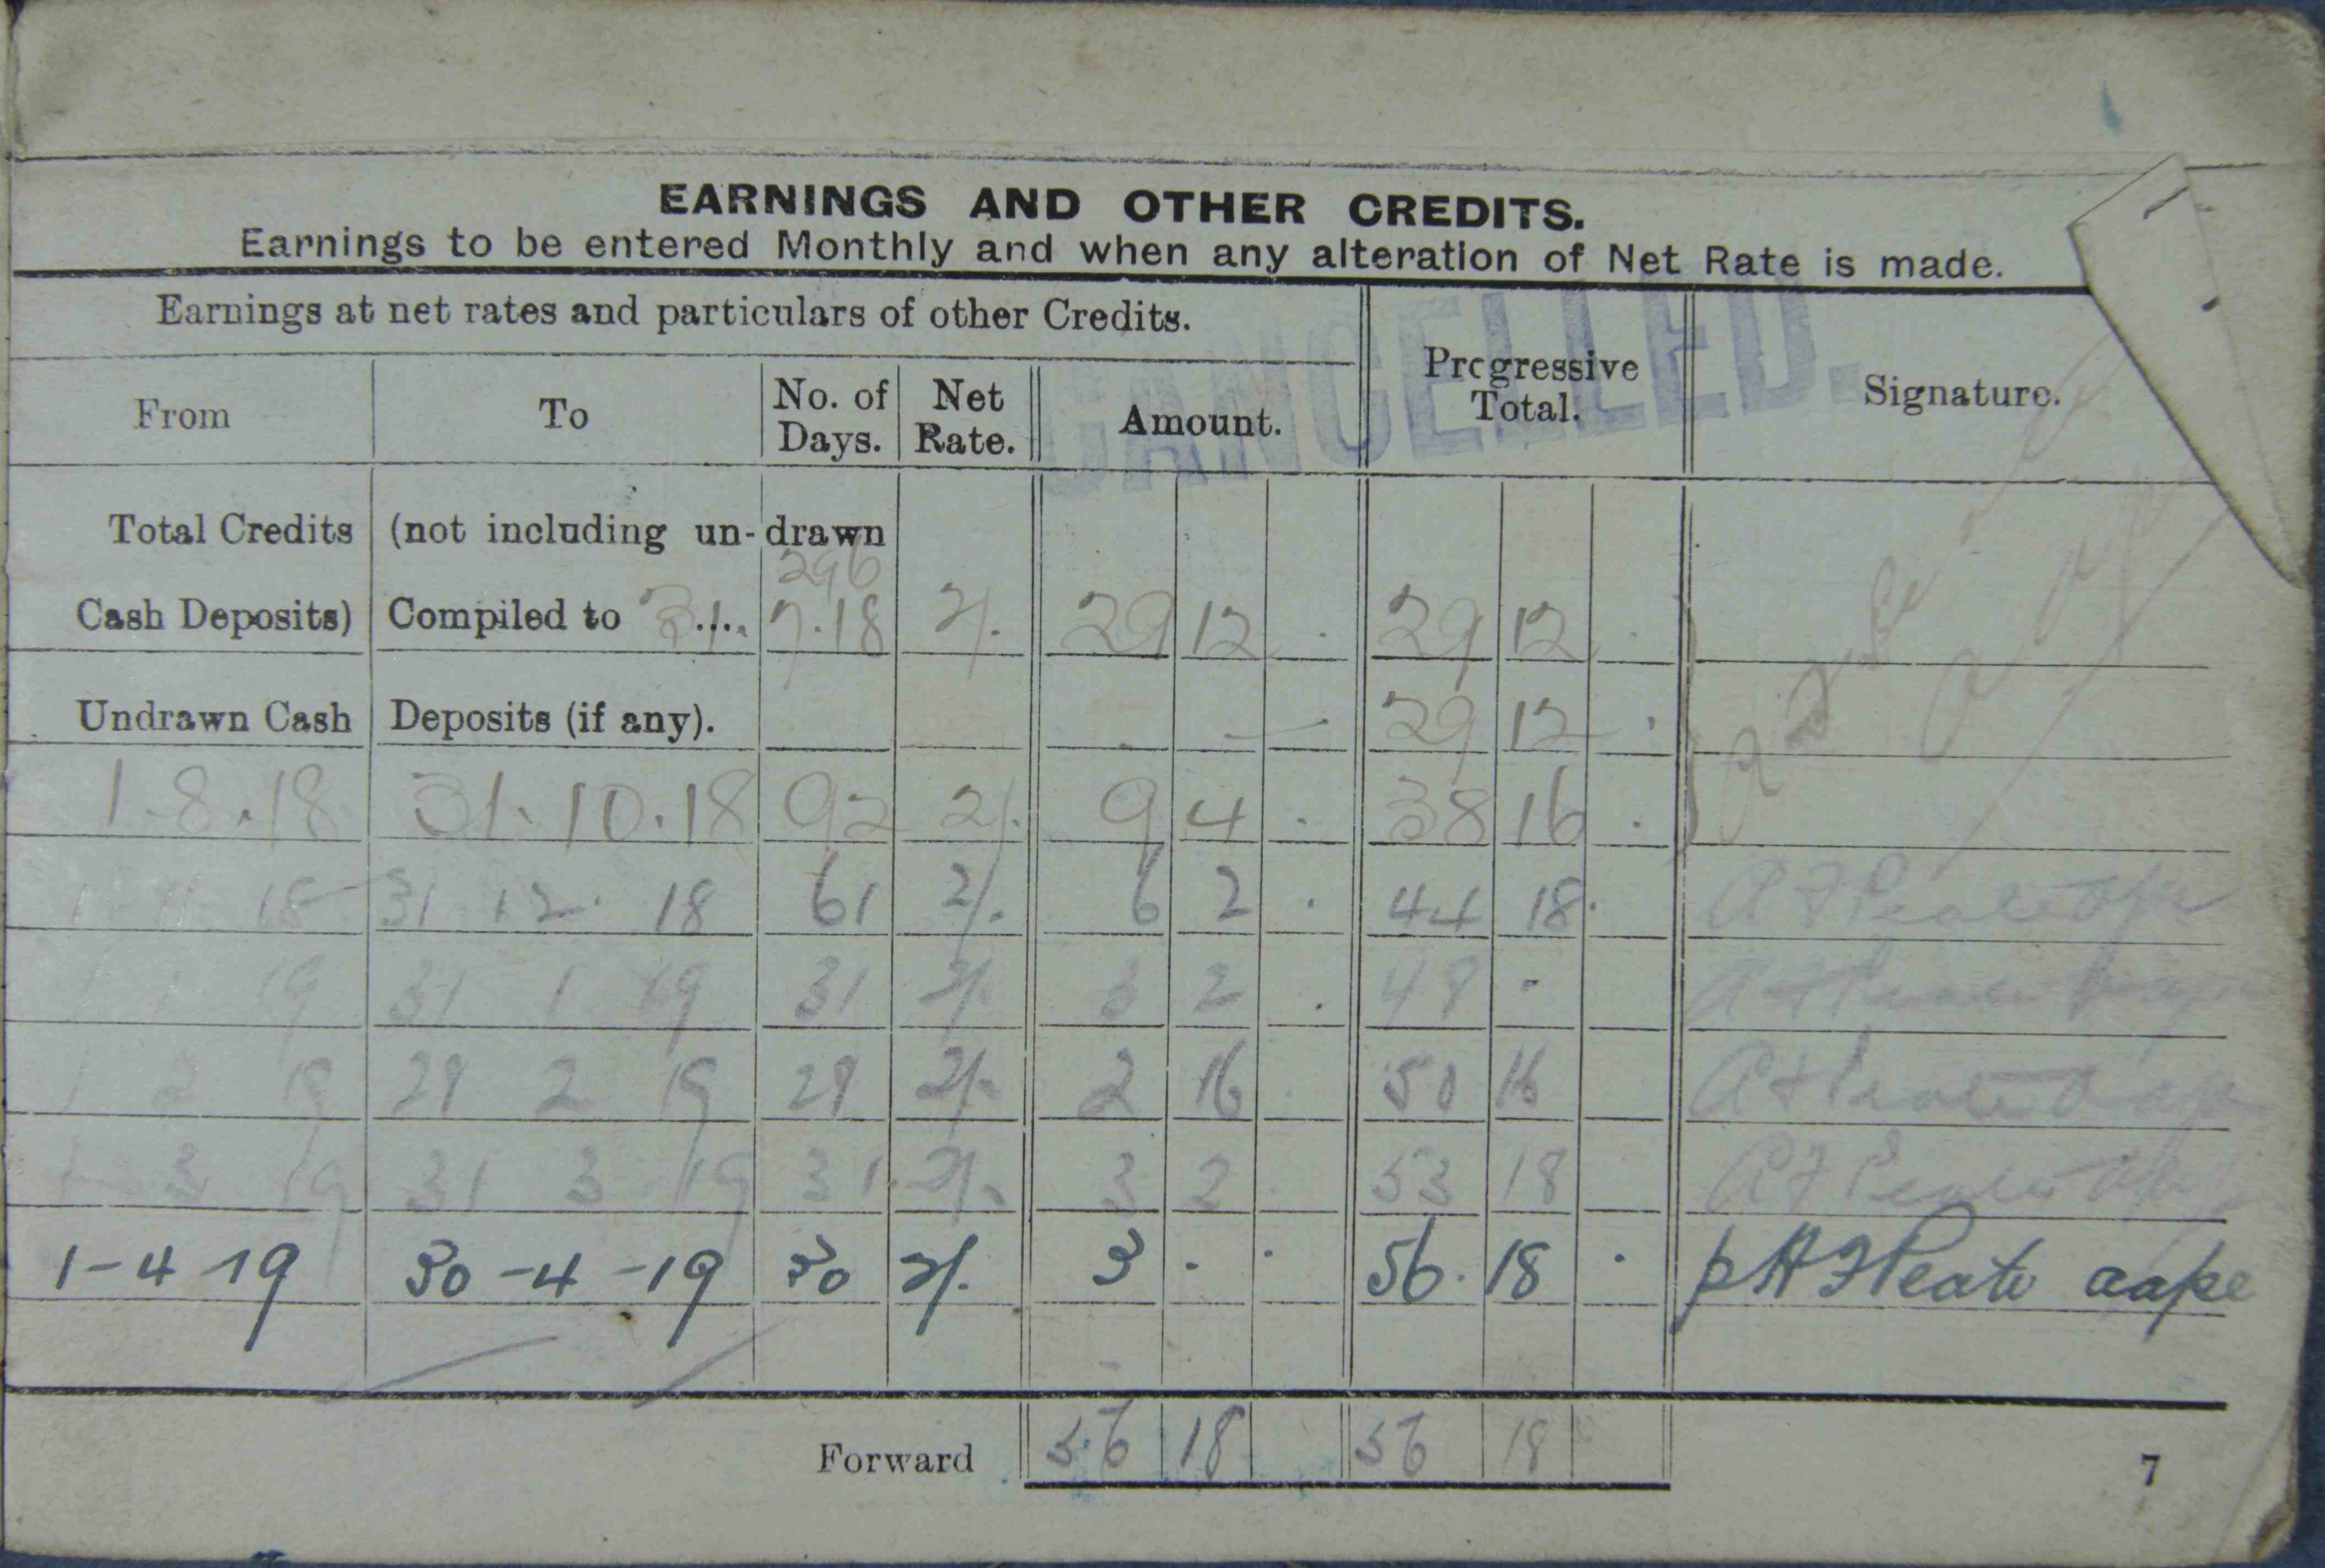 EARNINGS AND OTHER CREDITS.
Earnings to be entered Monthly and when any alteration of Net Rate is made.
CANCELLED.
Earnings at net rates and particulars of other Credits.
From To No. of Days. Net Rate. Amount. Progressive Total. Signature.
Total Credits (not including un-drawn
296
Cash Deposits) Compiled to 31. 7.18 2/. 29 12 . 29 12 .
Undrawn Cash Deposits (if any). — 29 12 .
1.8.18 31.10.18 92 2/. 9 4 . 38 16 .
1 11 18 31 12 18 61 2/. 6 2 . 44 18 .
1 1 19 31 1 19 31 2/. 3 2 . 48 -
1 2 19 28 2 19 28 2/. 2 16 50 16
1 3 19 31 3 19 31 2/. 3 2 53 18
1-4-19 30-4-19 30 2/. 3 . . 56. 18 .
Forward 56 18 56 18
7